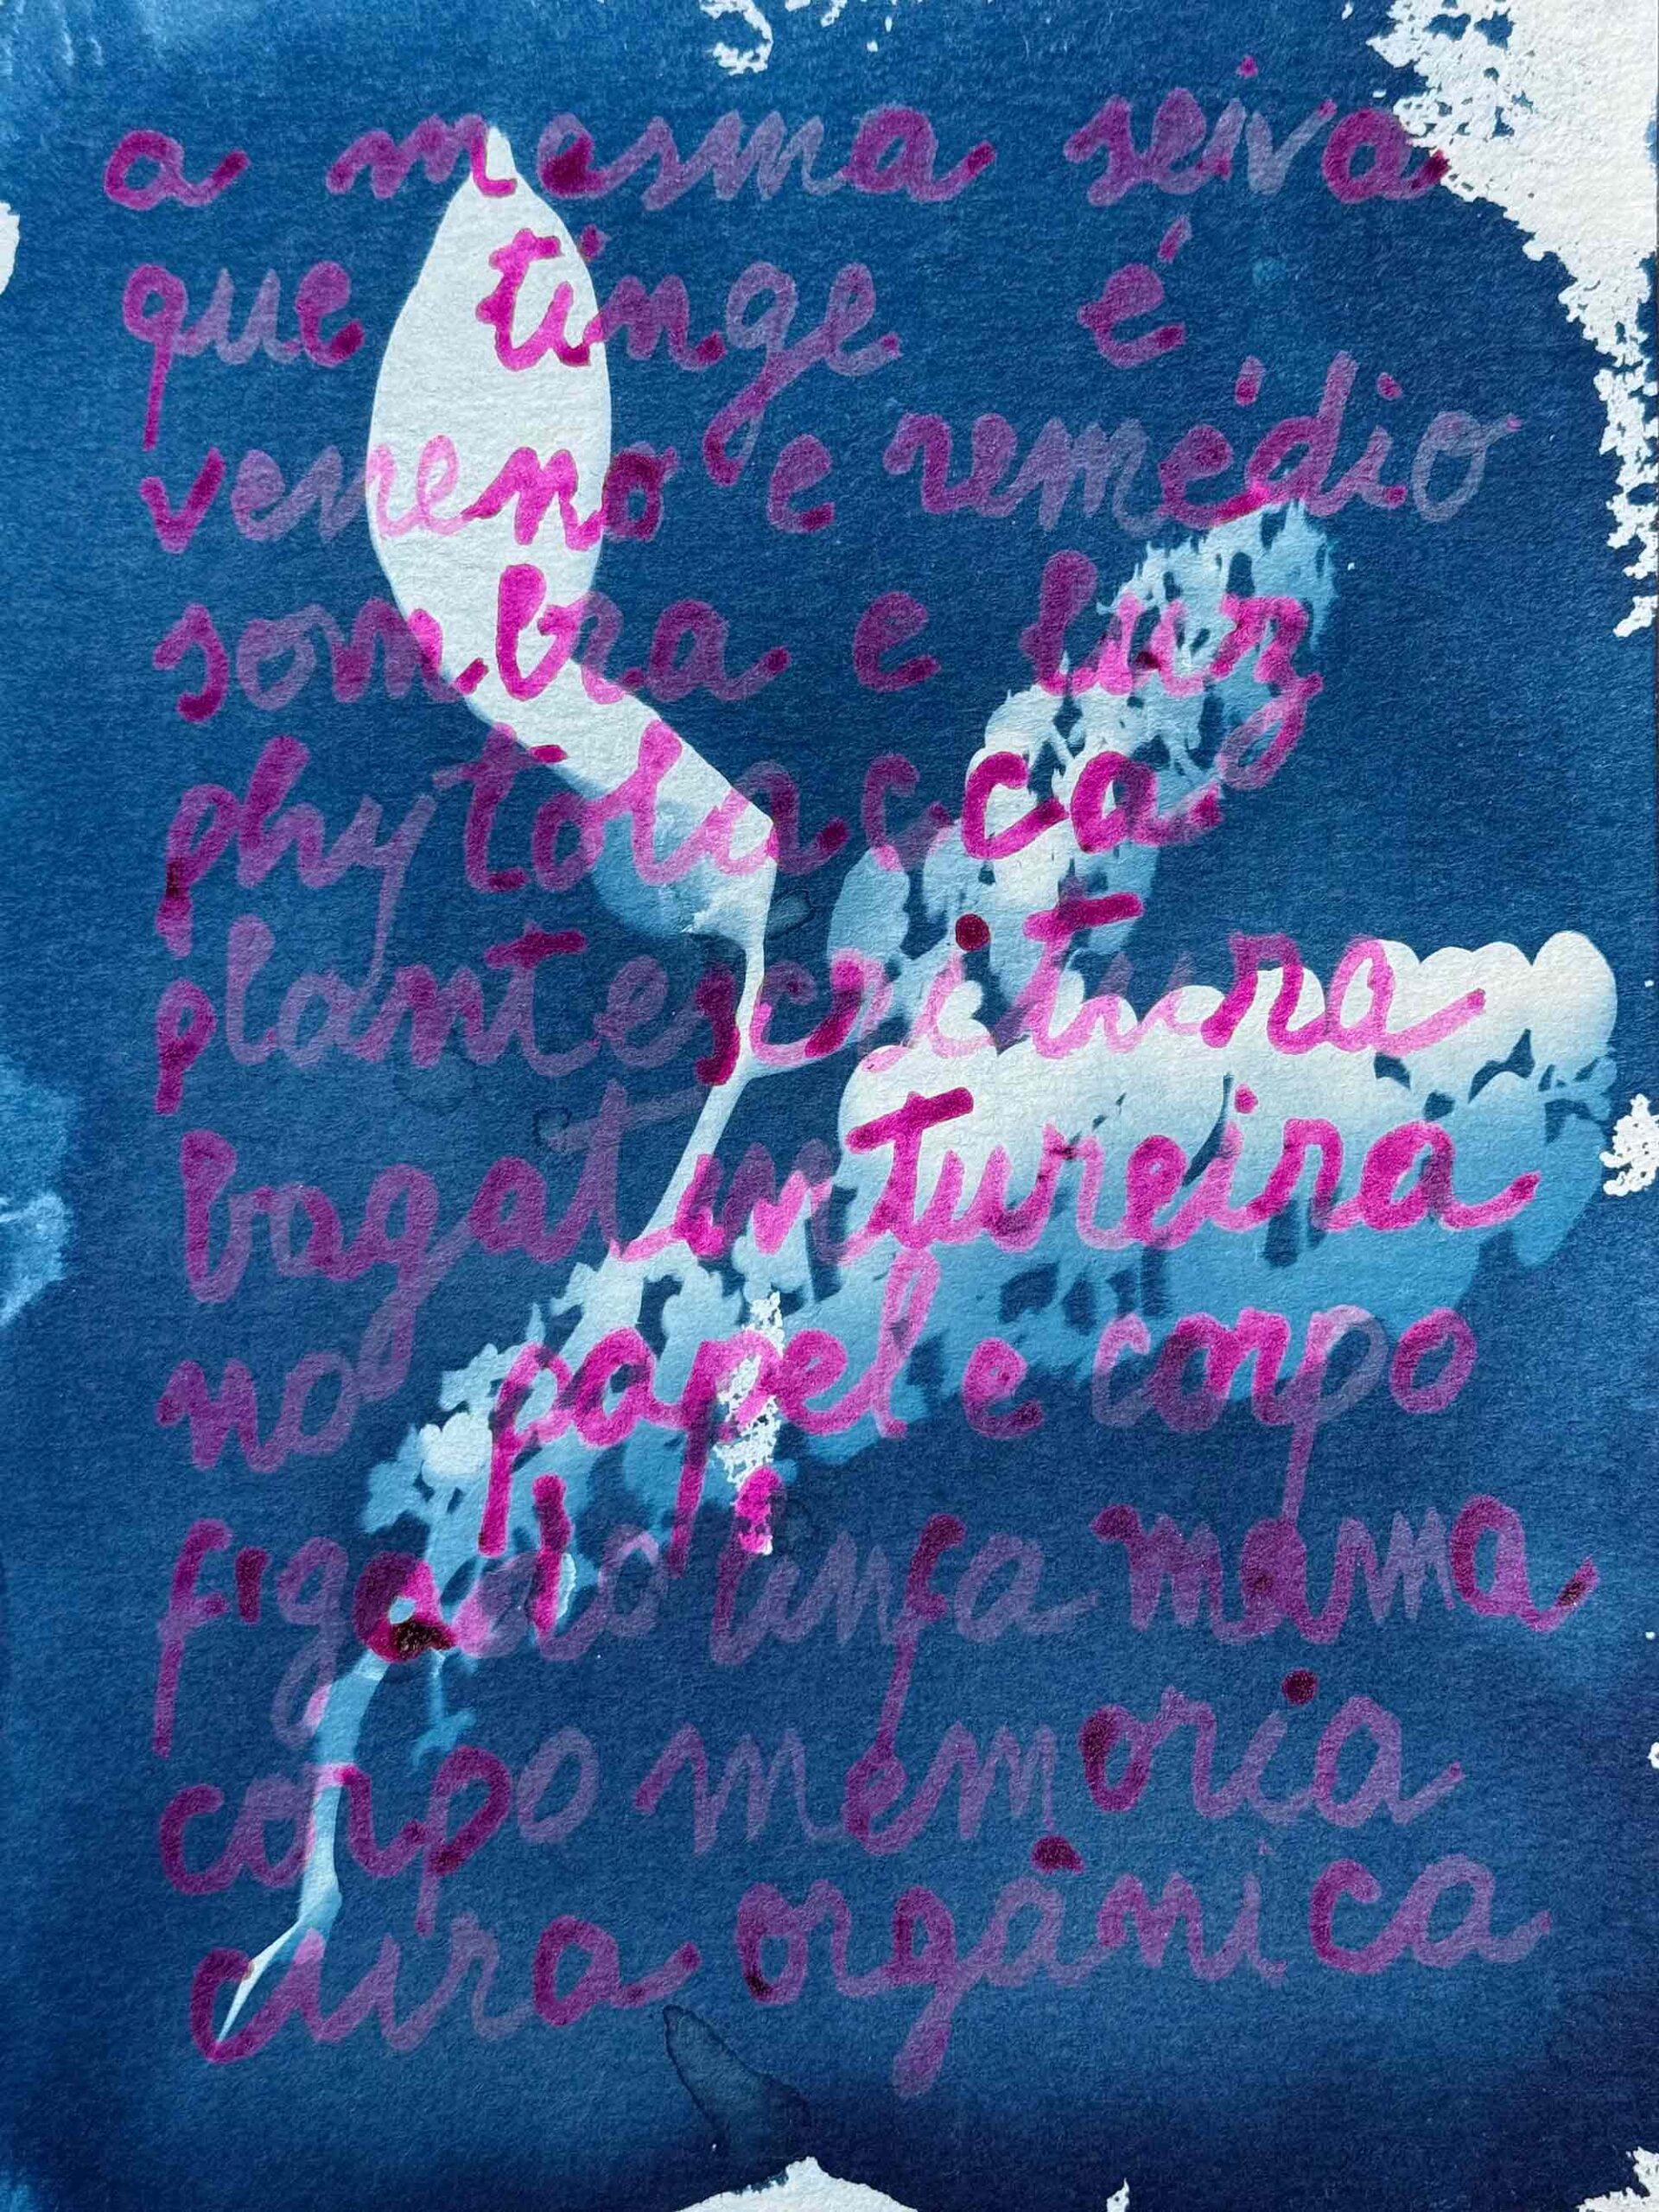 a mesma seiva
que tinge é
veneno e remédio
sombra e luz
phytolacca
plantescritura
bagatintureira
no papel e corpo
fígado linfa mama
corpo memoria
cura orgânica